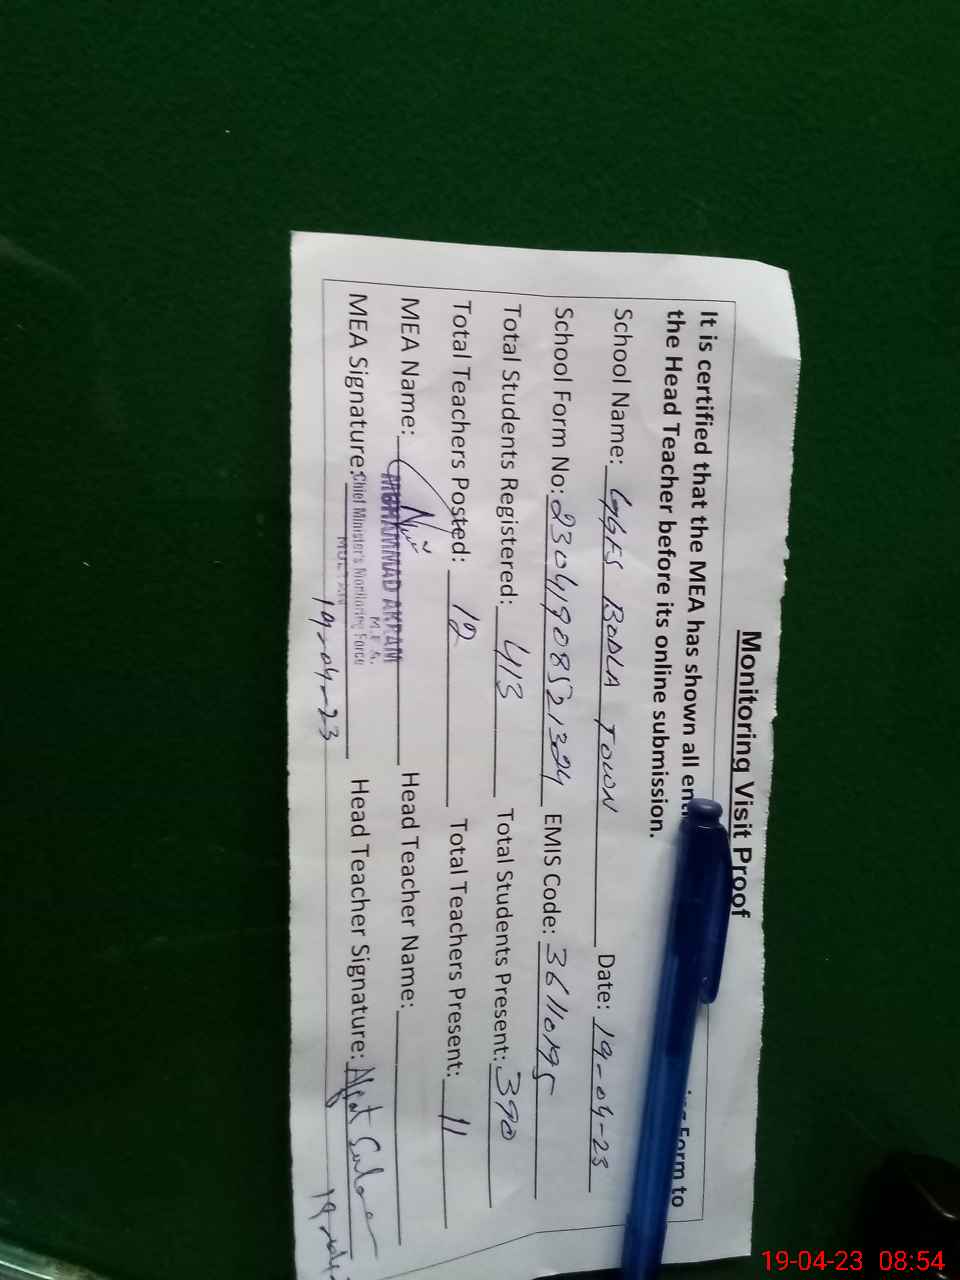 Monitoring Visit Proof
It is certified that the MEA has shown all Form to
the Head Teacher before its online submission.
School Name: GGES BODLA TOWN Date: 19-04-23
School Form No: 23041908521324 EMIS Code: 36110195
Total Students Registered: 413 Total Students Present: 390
Total Teachers Posted: 12 Total Teachers Present: 11
MEA Name: Head Teacher Name:
MUHAMMAD AKRAM
M.E.A.
MEA Signature: Head Teacher Signature:
Chief Minister's Monitoring Force
MULTAN
19-04-23
19-04-23 08:54